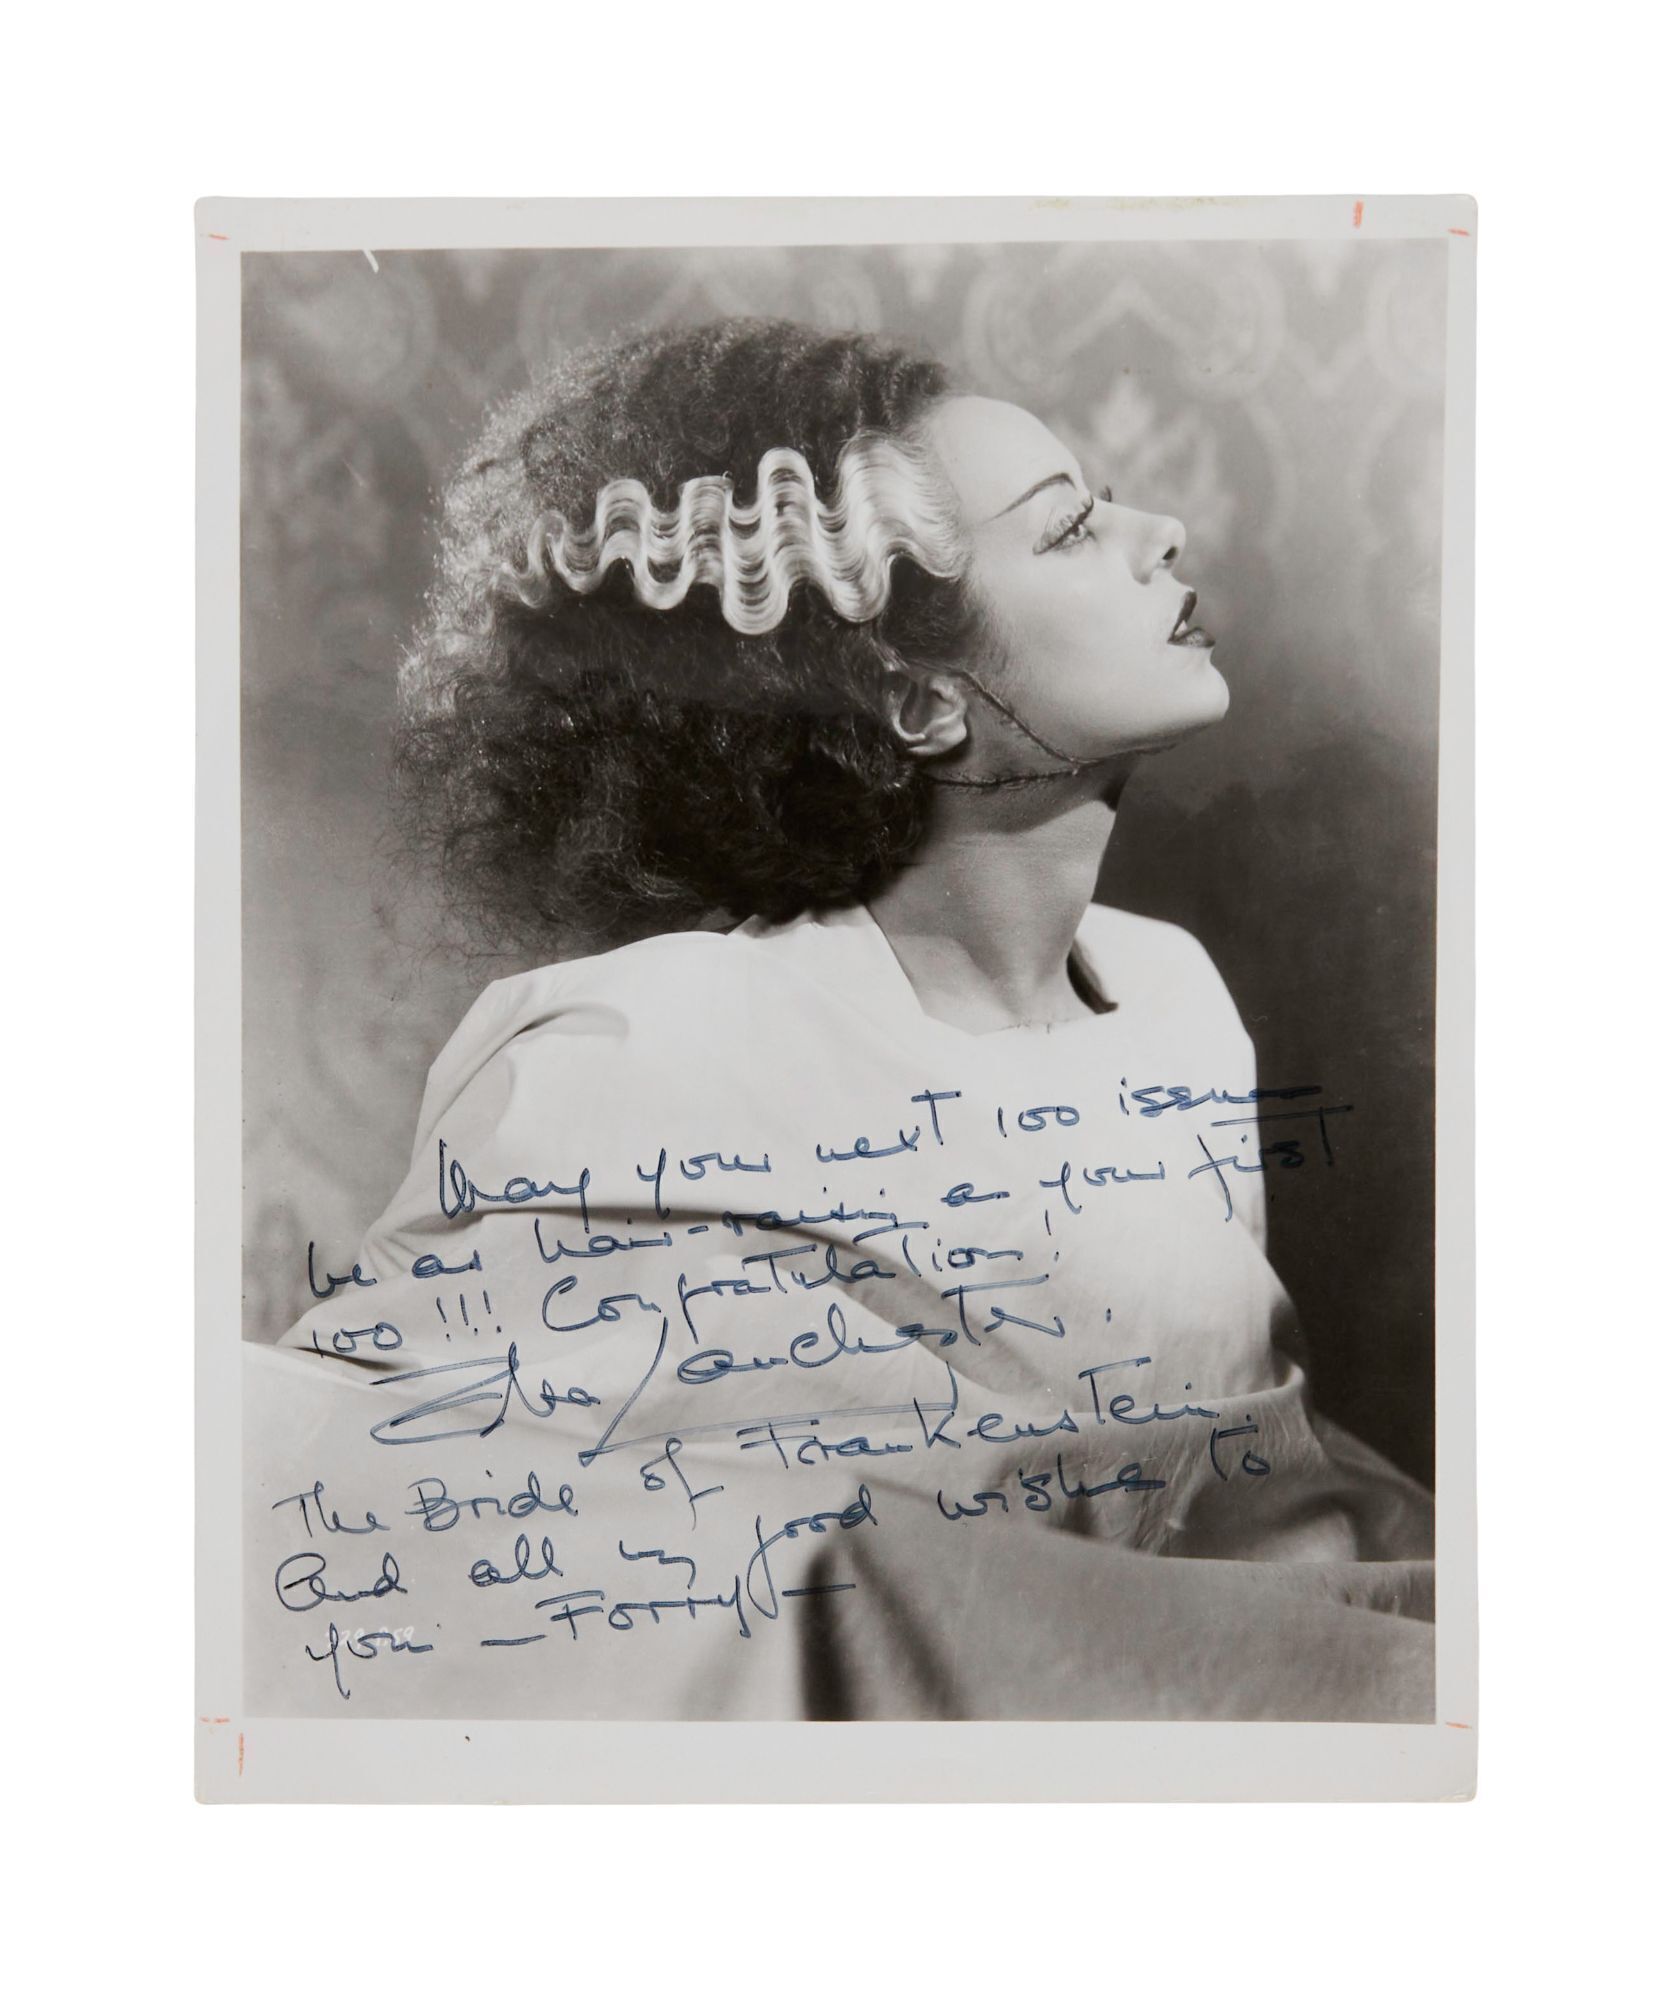 May your next 100 issues
be as hair-raising as your first
100 !!! Congratulations!
Elsa Lanchester.
The Bride of Frankenstein.
And all my good wishes to
you — Forry —